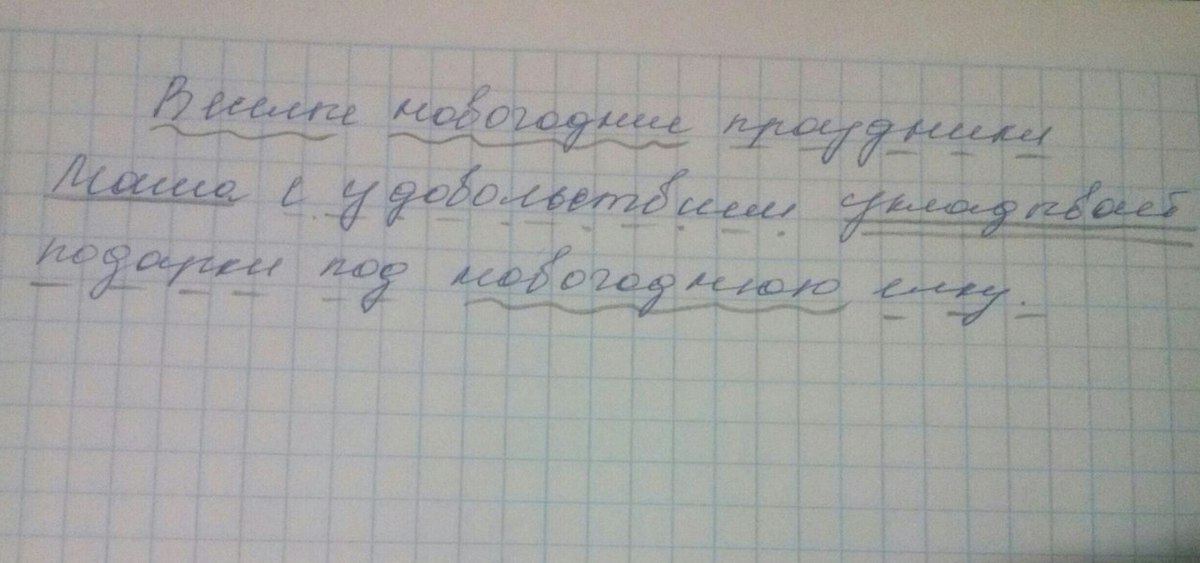 Веселые новогодние праздники
Маша с удовольствием укладывает
подарки под новогоднюю елку.